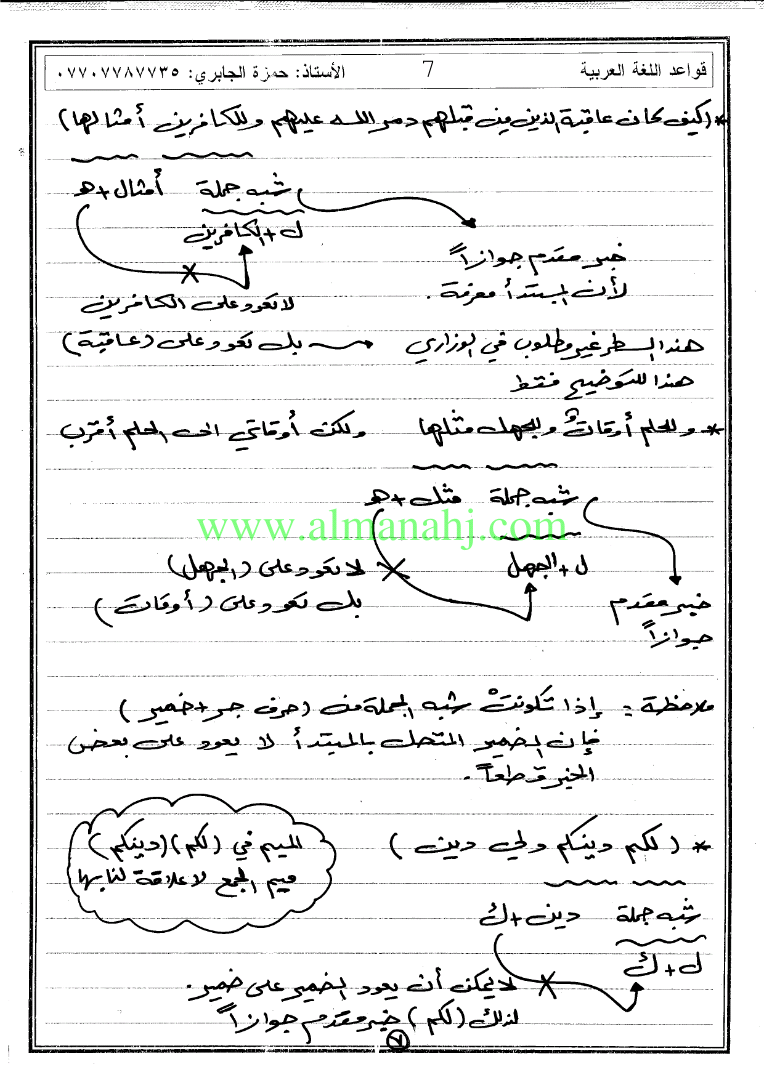 قواعد اللغة العربية 7 الأستاذ: حمزة الجابري: ٠٧٧٠٧٧٨٧٧٣٥
* (كيف كان عاقبة الذين من قبلهم دمر الله عليهم وللكافرين أمثالها)
شبه جملة أمثال + ها
ل + الكافرين
خبر مقدم جوازاً
لأن المبتدأ معرفة.
لا تعود على الكافرين
هذا السطر غير مطلوب في الوزاري بل تعود على (عاقبة)
هذا للتوضيح فقط
* وللحلم أوقاتٌ وللجهل مثلها ولكن أوقاتي الى الحلم أقرب
شبه جملة مثل + ها
www.almanahj.com
ل + الجهل لا تعود على (الجهل)
خبر مقدم بل تعود على (أوقات)
جوازاً
ملاحظة: إذا تكونتْ شبه الجملة من (حرف جر + ضمير)
فإن الضمير المتصل بالمبتدأ لا يعود على بعض
الخبر قطعاً.
* (لكم دينكم ولي دين)
الميم في (لكم) (دينكم)
ميم الجمع لا علاقة لنا بها
شبه جملة دين + ك
ل + ك
لا يمكن أن يعود الضمير على ضمير.
لذلك (لكم) خبر مقدم جوازاً
٧